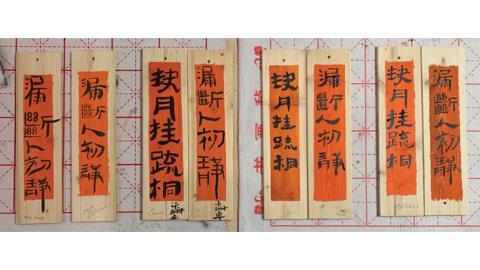 漏斷人初静
漏斷人初静
缺月挂疏桐
漏斷人初静
缺月挂疏桐
漏斷人初静
缺月挂疏桐
漏斷人初静